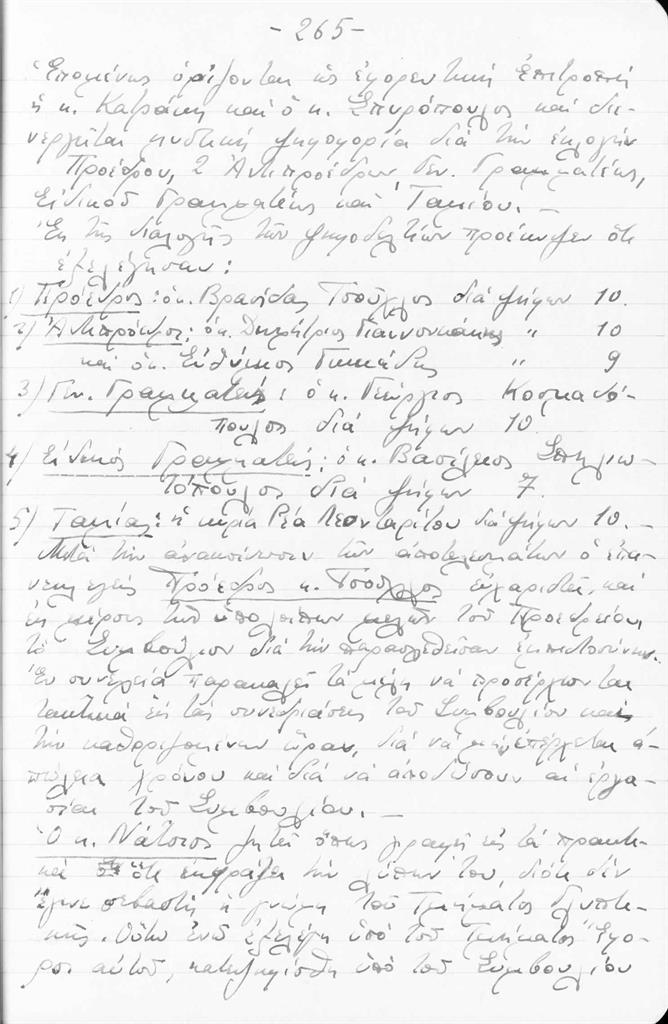 - 265 -
Ἑπομένως ὁρίζονται ὡς ἐφορευτική Ἐπιτροπή
ἡ κ. Κατράκη καί ὁ κ. Σπυρόπουλος καί διε-
νεργεῖται μυστική ψηφοφορία διά τήν ἐκλογήν
Προέδρου, 2 Ἀντιπροέδρων Γεν. Γραμματέως,
Εἰδικοῦ Γραμματέως καί Ταμίου. —
Ἐκ τῆς διαλογῆς τῶν ψηφοδελτίων προέκυψεν ὅτι
ἐξελέγησαν:
1) Πρόεδρος: ὁ κ. Βρασίδας Τσοῦχλος διά ψήφων 10.
2) Ἀντιπρόεδροι: ὁ κ. Δημήτριος Γιαννουκάκης " 10
καί ὁ κ. Εὐθύμιος " 9
3) Γεν. Γραμματεύς: ὁ κ. Γεώργιος Κοσμαδό-
πουλος διά ψήφων 10.
4) Εἰδικός Γραμματεύς: ὁ κ. Βασίλειος Σπηλιω-
τόπουλος διά ψήφων 7.
5) Ταμίας: ἡ κυρία Ρέα Λεονταρίτου διά ψήφων 10. —
Μετά τήν ἀνακοίνωσιν τῶν ἀποτελεσμάτων ὁ ἐπα-
νεκλεγείς Πρόεδρος κ. Τσοῦχλος εὐχαριστεῖ, καί
ἐκ μέρους τῶν ὑπολοίπων μελῶν τοῦ Προεδρείου,
τό Συμβούλιον διά τήν παρασχεθεῖσαν ἐμπιστοσύνην.
Ἐν συνεχείᾳ παρακαλεῖ τά μέλη νά προσέρχωνται
τακτικά εἰς τάς συνεδριάσεις τοῦ Συμβουλίου καί
τήν καθοριζομένην ὥραν, διά νά μή ἐπέρχεται ἀ-
πώλεια χρόνου καί διά νά ἀποδώσουν αἱ ἐργα-
σίαι τοῦ Συμβουλίου. —
Ὁ κ. Νάτσιος ζητεῖ ὅπως γραφῇ εἰς τά πρακτι-
κά ὅτι ἐκφράζει τήν λύπην του, διότι δέν
ἔγινε σεβαστή ἡ γνώμη τοῦ Τμήματος Γλυπτι-
κῆς. Οὕτω ἐνῶ ἐξελέγη ὑπό τοῦ Τμήματος Ἔφο-
ρος αὐτοῦ, κατεψηφίσθη ὑπό τοῦ Συμβουλίου